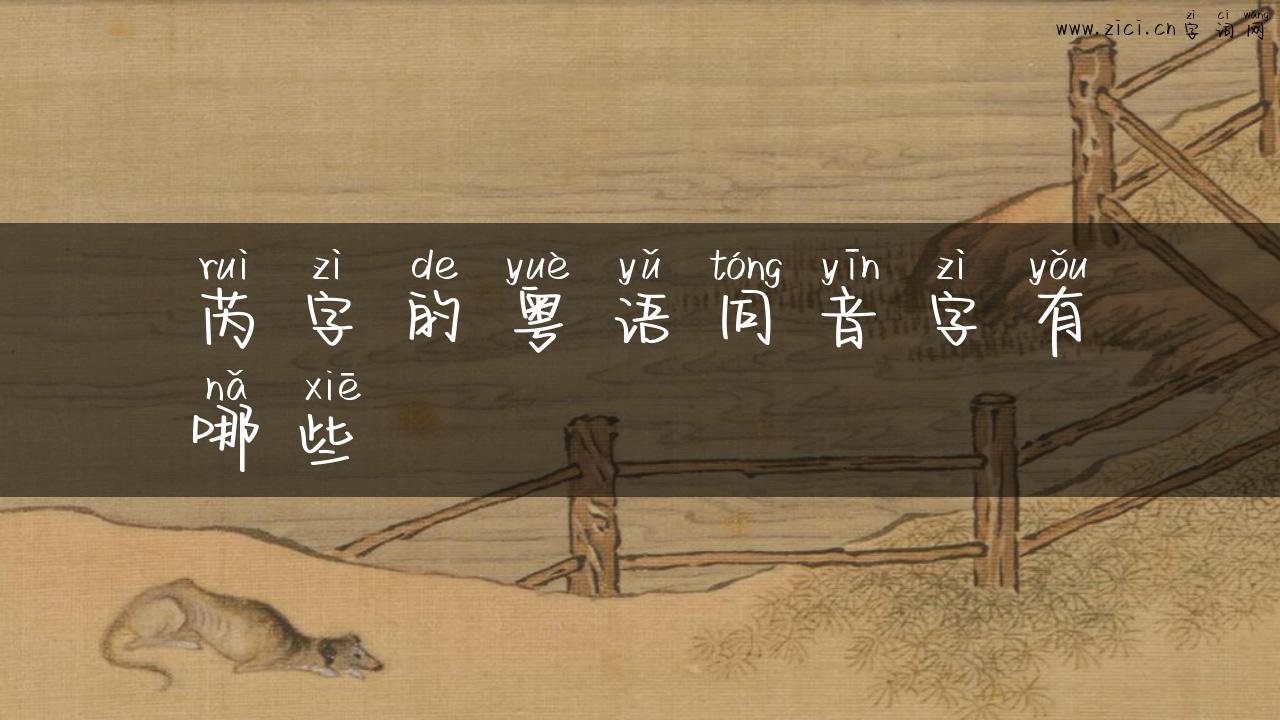 zì cí wǎng
www.zici.cn 字词网
ruì zì de yuè yǔ tóng yīn zì yǒu
芮字的粤语同音字有
nǎ xiē
哪些